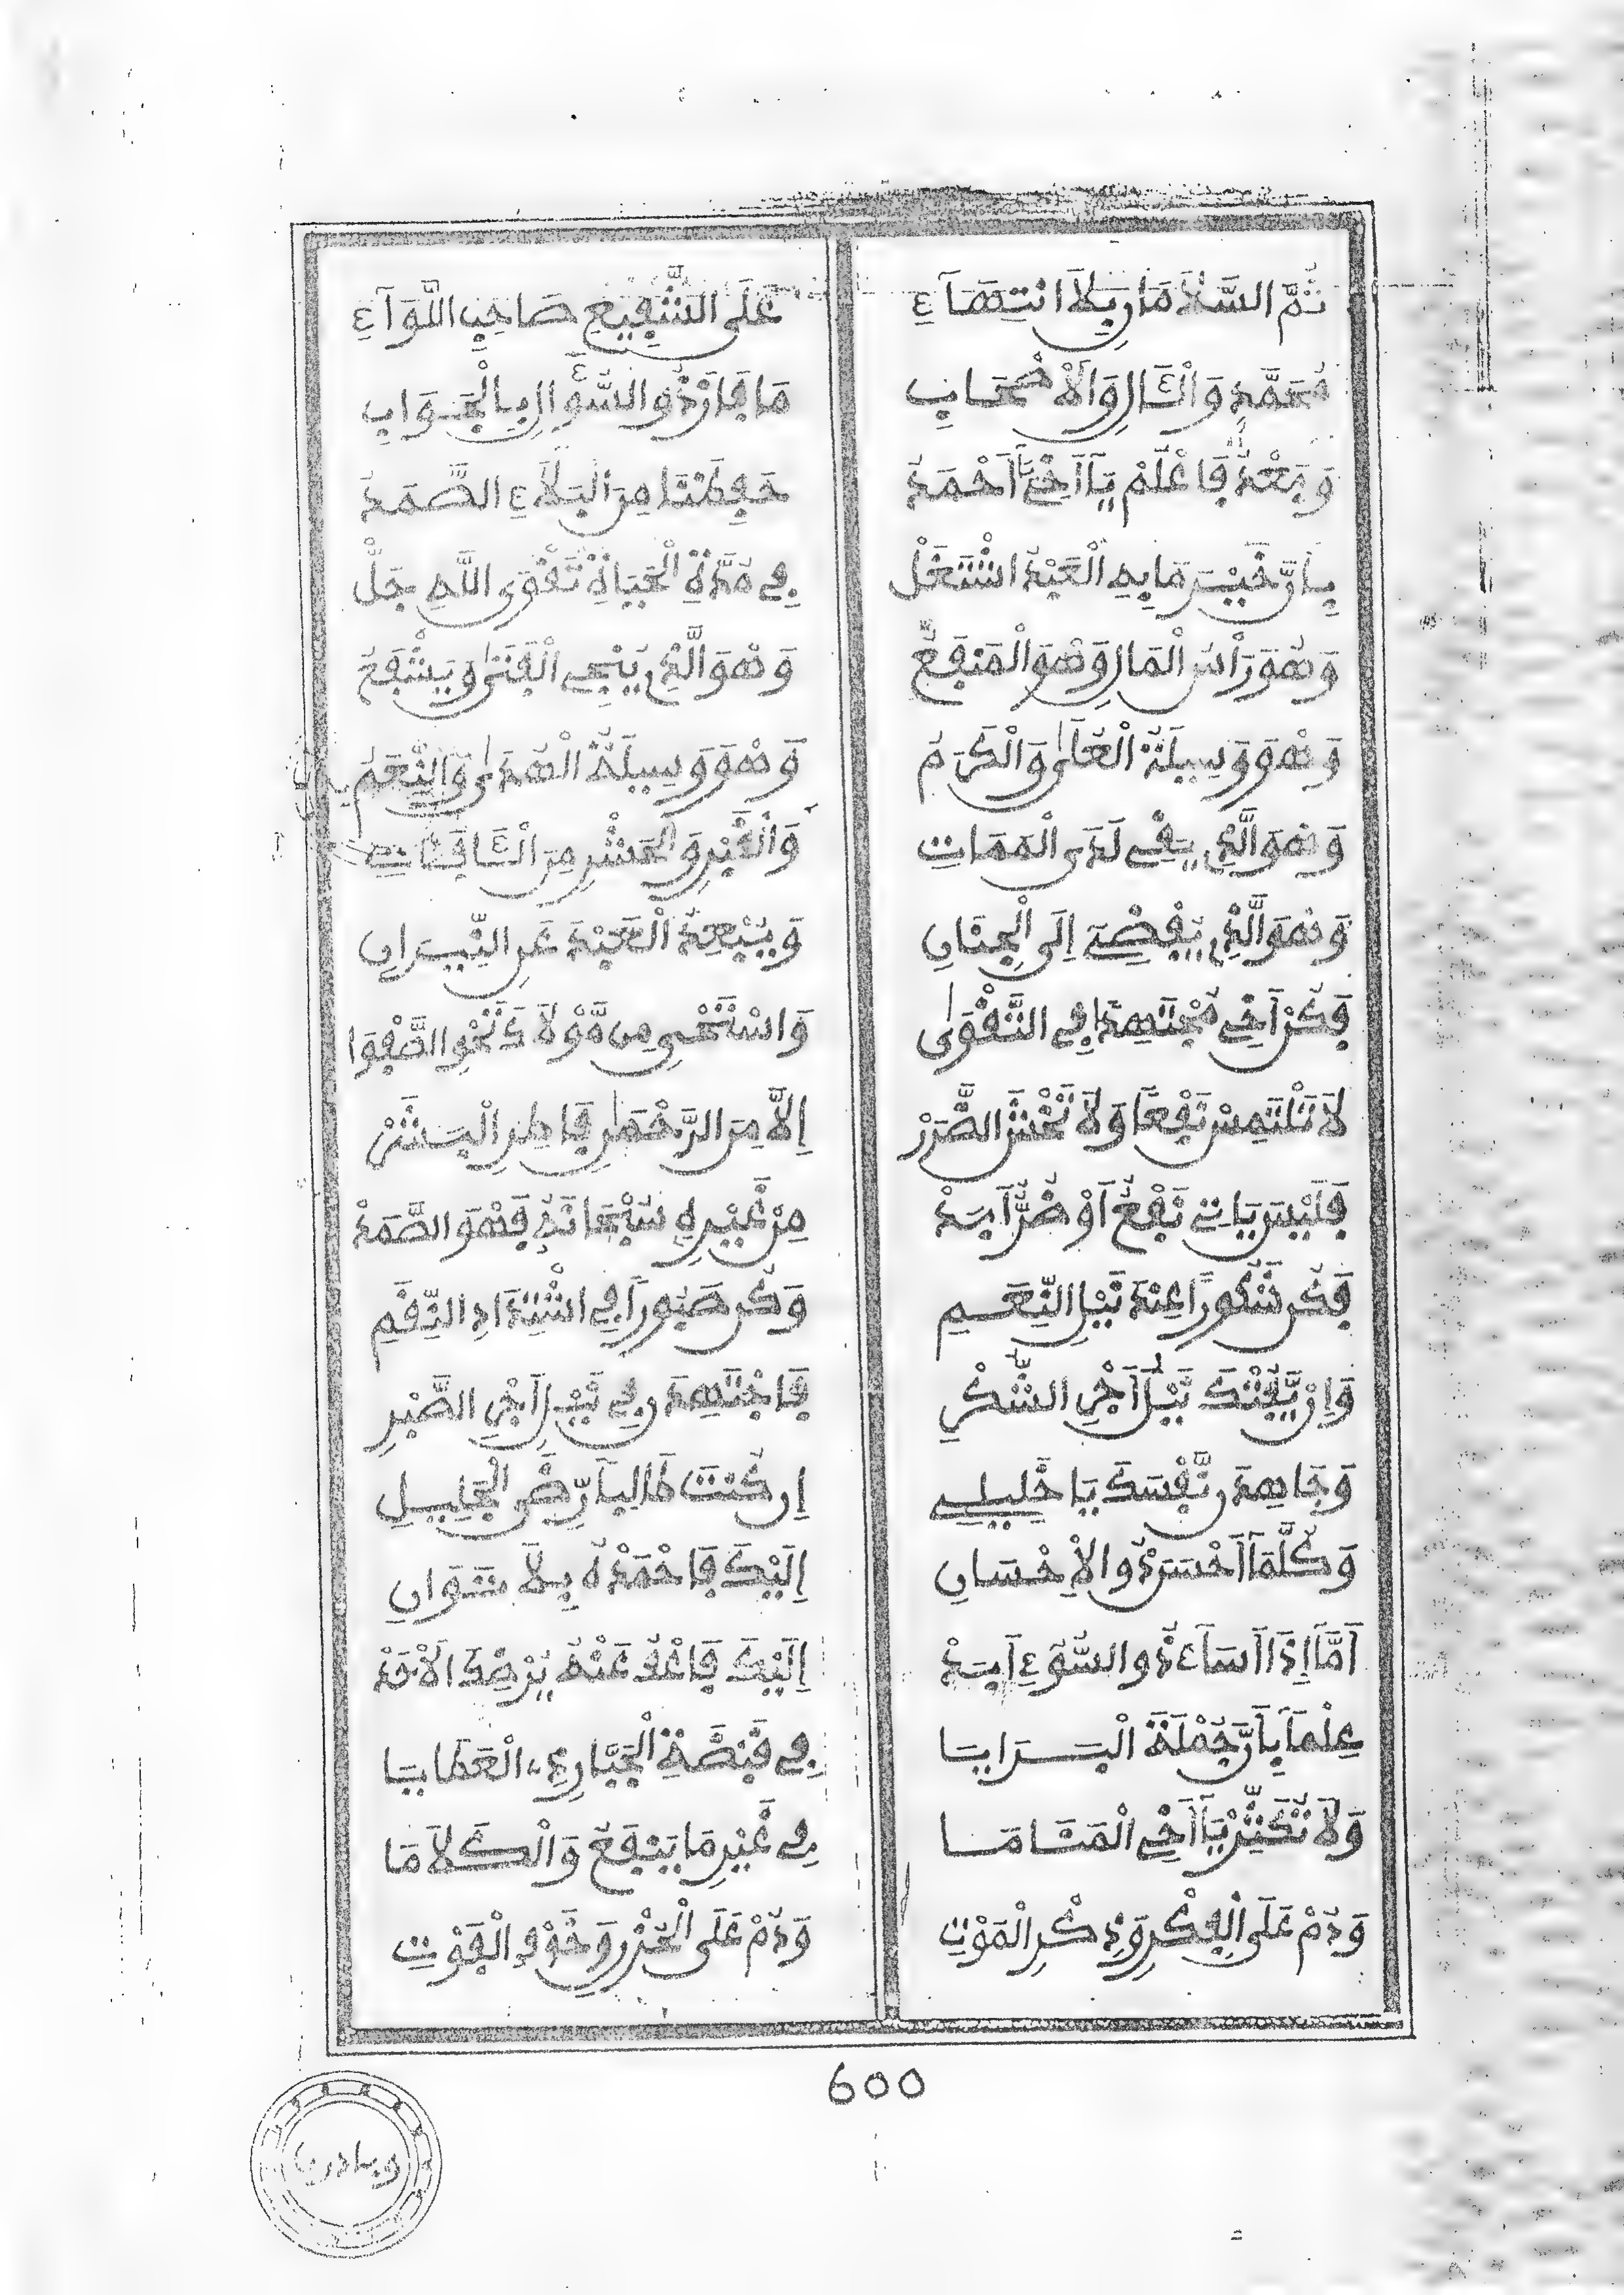 ثُمَّ السَّلَامَانِ بِلَا انْتِهَآءِ عَلَى الشَّفِيعِ صَاحِبِ اللِّوَآءِ
مُحَمَّدٍ وَالْئَالِ وَالْأَصْحَابِ مَا فَازَ ذُو السُّؤَالِ بِالْجَوَابِ
وَبَعْدُ فَاعْلَمْ يَآ أَخِي أَحْمَدُ حَفِظَنَا مِنَ الْبَلَآءِ الصَّمَدُ
بِأَنَّ خَيْرَ مَا بِهِ الْعَبْدُ اشْتَغَلْ فِي مُدَّةِ الْحَيَاةِ تَقْوَى اللَّهِ جَلّْ
وَهُوَ رَأْسُ الْمَالِ وَهْوَ الْمَنْفَعُ وَهُوَ الَّذِي يُنْجِي الْفَتَى وَيَشْفَعُ
وَهْوَ وَسِيلَةُ الْعُلَى وَالْكَرَمُ وَهْوَ وَسِيلَةُ الْهُدَى وَالنِّعَمُ
وَهُوَ الَّذِي يَفِي لَدَى الْمَمَاتِ وَالْقَبْرِ وَالْحَشْرِ مِنَ الْئَافَاتِ
وَهُوَ الَّذِي يُفْضِي إِلَى الْجِنَانِ وَيُبْعِدُ الْعَبْدَ عَنِ النِّيرَانِ
فَكُنْ أَخِي مُجْتَهِدًا فِي التَّقْوَى وَاسْتَحْيِ مِن مَّوْلَاكَ تَحْوِ الصَّفْوَا
لَا تَلْتَمِسْ نَفْعًا وَلَا تَخْشَ الضَّرَرْ إِلَّا مِنَ الرَّحْمَنِ فَاطِرِ الْبَشَرْ
فَلَيْسَ يَاتِي نَفْعٌ أَوْ ضُرٌّ أَبَدْ مِنْ غَيْرِهِ سُبْحَانَهُ فَهْوَ الصَّمَدْ
فَكُن شَكُورًا عِنْدَ نَيْلِ النِّعَمِ وَكُن صَبُورًا فِي اشْتِدَادِ النِّقَمِ
وَإِنْ يَّفُتْكَ نَيْلُ أَجْرِ الشُّكْرِ فَاجْتَهِدَن فِي نَيْلِ أَجْرِ الصَّبْرِ
وَجَاهِدَن نَّفْسَكَ يَا خَلِيلِي إِن كُنْتَ طَالِبًا رِّضَى الْجَلِيلِ
وَكُلَّمَآ أَحْسَنَ ذُو الْإِحْسَانِ إِلَيْكَ فَاحْمَدْهُ بِلَا تَوَانِ
أَمَّآ إِذَآ أَسَآءَ ذُو السُّوءِ أَبَدْ إِلَيْكَ فَاعْفُ عَنْهُ يُرْضِكَ الْأَحَدْ
عِلْمًا بِأَنَّ جُمْلَةَ الْبَرَايَا فِي قَبْضَةِ الْجَبَّارِ ذِي الْعَطَايَا
وَلَا تُكَثِّرْ يَآ أَخِي الْمَنَامَا فِي غَيْرِ مَا يَنْفَعُ وَالْكَلَامَا
وَدُمْ عَلَى الْفِكْرِ وَذِكْرِ الْمَوْتِ وَدُمْ عَلَى الْحَذْرِ وَخَوْفِ الْفَوْتِ
600